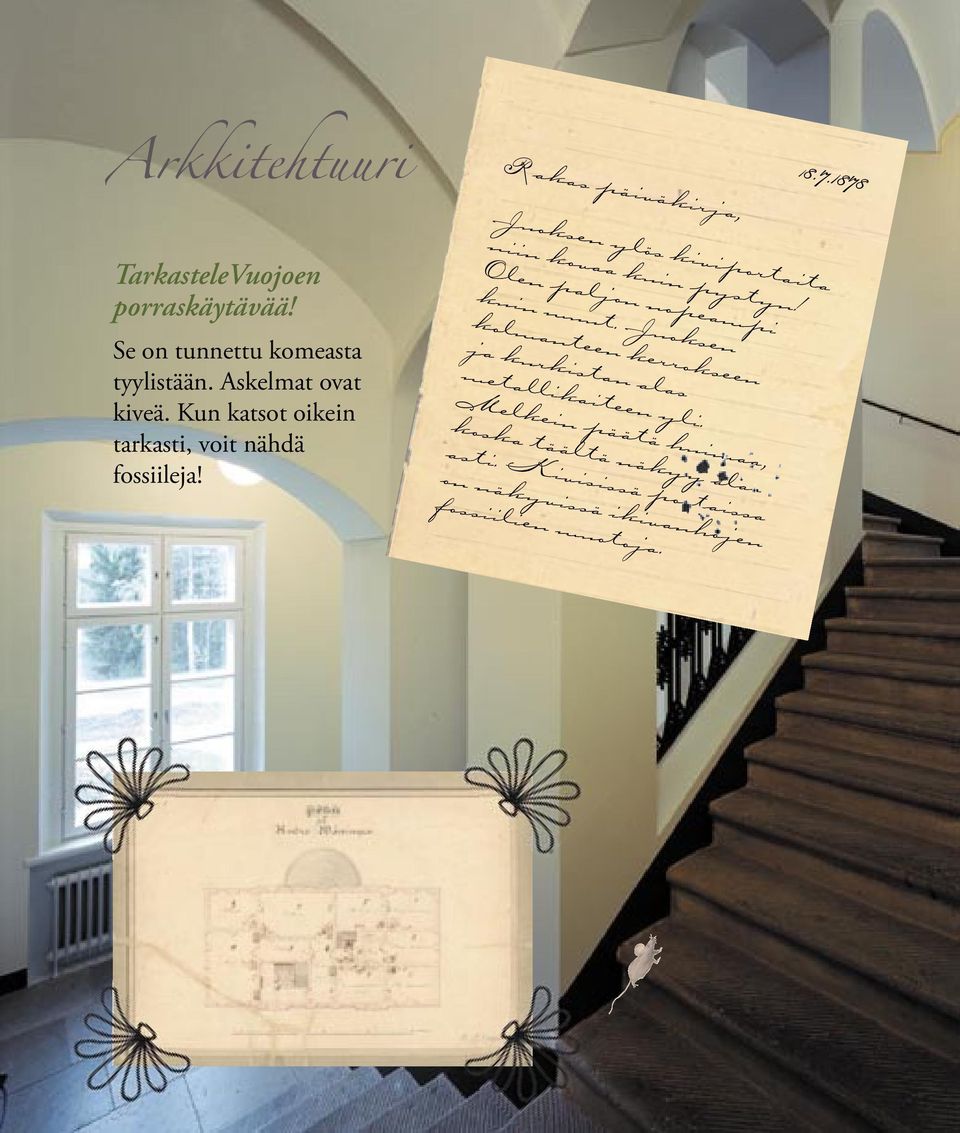 Arkkitehtuuri
TarkasteleVuojoen
porraskäytävää!
Se on tunnettu komeasta
tyylistään. Askelmat ovat
kiveä. Kun katsot oikein
tarkasti, voit nähdä
fossiileja!
18.7.1878
Rakas päiväkirja,
Juoksen ylös kiviportaita
niin kovaa kuin pystyn!
Olen paljon nopeampi
kuin muut. Juoksen
kolmanteen kerrokseen
ja kurkistan alas
metallikaiteen yli.
Melkein päätä huimaa,
koska täältä näkyy alas
asti. Kivisissä portaissa
on näkyvissä ikivanhojen
fossiilien muotoja.